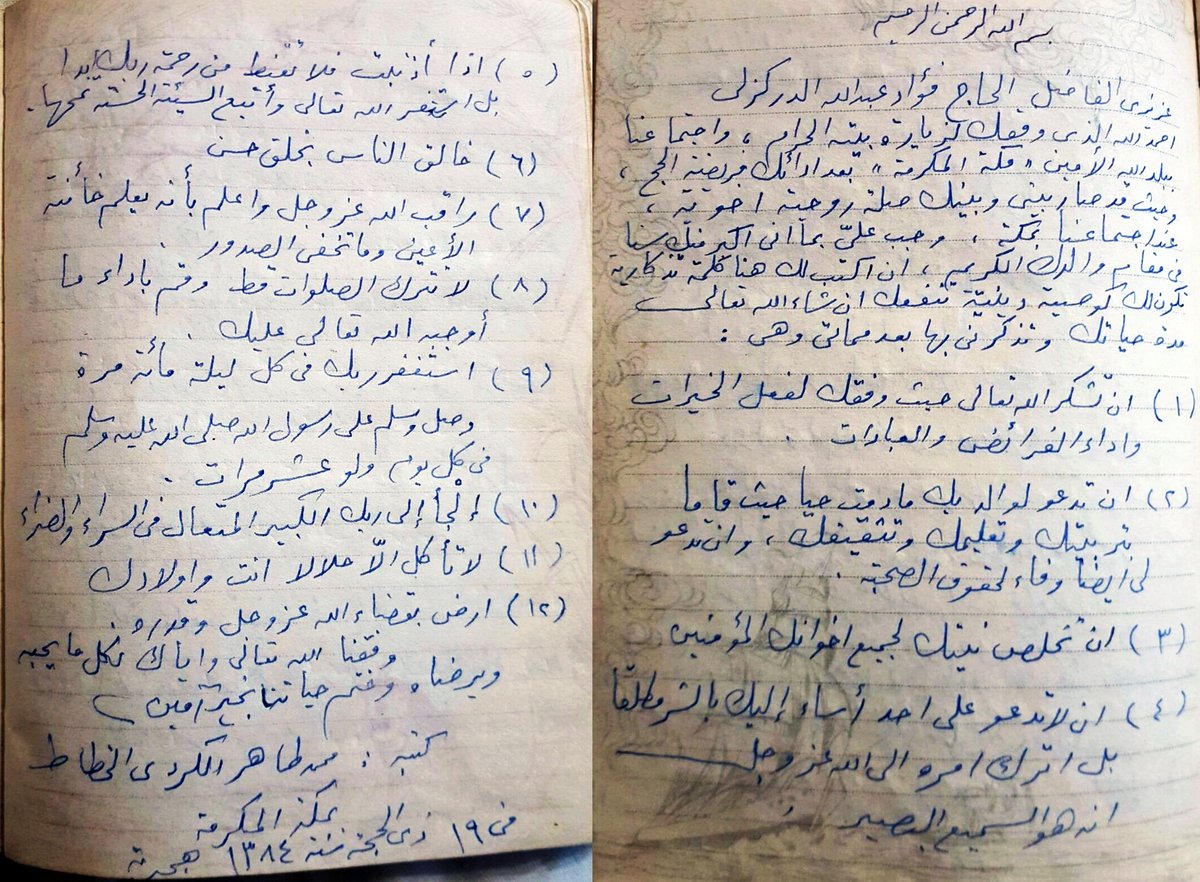 بسم الله الرحمن الرحيم
عزيزى الفاضل الحاج فؤاد عبدالله الدركزلى
احمد الله الذى وفقك لزيارة بيته الحرام ، واجتماعنا
ببلد الله الأمين « مكة المكرمة » بعد ادائك فريضة الحج ،
وحيث قد صار بينى وبينك صلة روحية اخوية ،
عند اجتماعنا بمكة ، وجب علىّ بما انى اكبر منك سنا
فى مقام والدك الكريم ، ان اكتب لك هنا كلمة تذكارية
تكون لك كوصية دينية تنفعك ان شاء الله تعالى
مدة حياتك وتذكرنى بها بعد مماتى وهى :
(١) ان تشكر الله تعالى حيث وفقك لفعل الخيرات
واداء الفرائض والعبادات .
(٢) ان تدعو لوالديك مادمت حيا حيث قاما
بتربيتك وتعليمك وتثقيفك ، وان تدعو
لى ايضا وفاء لحقوق الصحبة .
(٣) ان تخلص نيتك لجميع اخوانك المؤمنين
(٤) ان لا تدعو على احد أساء إليك بالشر مطلقا
بل اترك امره الى الله عز وجل
انه هو السميع البصير .
(٥) اذا أذنبت فلا تقنط من رحمة ربك ابدا
بل استغفر الله تعالى وأتبع السيئة الحسنة تمحها .
(٦) خالق الناس بخلق حسن
(٧) راقب الله عز وجل واعلم بأنه يعلم خائنة
الأعين وما تخفى الصدور .
(٨) لا تترك الصلوات قط وقم باداء ما
أوجبه الله تعالى عليك .
(٩) استغفر ربك فى كل ليلة مأئة مرة
وصل وسلم على رسول الله صلى الله عليه وسلم
فى كل يوم ولو عشر مرات .
(١٠) إلْجأ إلى ربك الكبير المتعال فى السراء والضراء
(١١) لا تأكل الّا حلالا انت واولادك
(١٢) ارض بقضاء الله عز وجل وقدره .
وفقنا الله تعالى واياك لكل ما يحبه
ويرضاه وختم حياتنا بخير آمين
كتبه : محمد طاهر الكردى الخطاط
بمكة المكرمة
فى ١٩ ذى الحجة سنة ١٣٨٤ هجرية